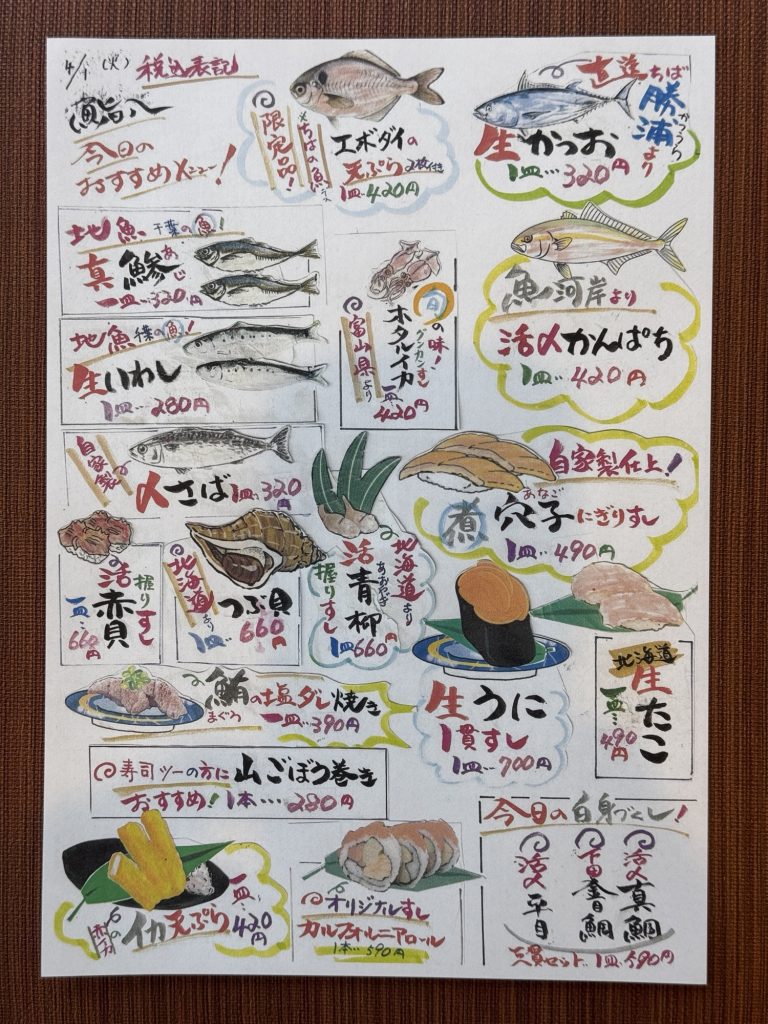 4/1(火) 税込表記
今日の
おすすめメニュー!
限定品!
※ちばの魚
エボダイの
天ぷら 2枚付き
1皿…420円
直送 ちば
勝浦より
かつうら
生かつお
1皿…320円
地魚 千葉の魚!
真鯵
あじ
一皿…320円
地魚 千葉の魚!
生いわし
1皿…280円
旬の味!
グンカンすし
ホタルイカ
富山県より
一皿…420円
魚河岸より
活〆かんぱち
1皿…420円
自家製の
〆さば 1皿…320円
自家製仕上!
煮穴子にぎりすし
あなご
1皿…490円
活赤貝
握りすし
一皿…660円
北海道より
つぶ貝
1皿 660円
北海道より
活青柳
あおやぎ
握りすし
1皿660円
生うに
1貫すし
1皿…700円
北海道
生たこ
一皿…490円
鮪の塩ダレ焼き
まぐろ
一皿…390円
寿司ツーの方に 山ごぼう巻き
おすすめ! 1本…280円
イカ天ぷら
一皿…420円
オリジナルすし
カルフォルニアロール
1本…590円
今日の白身づくし!
活〆真鯛
下田金目鯛
活〆平目
三貫セット…1皿590円